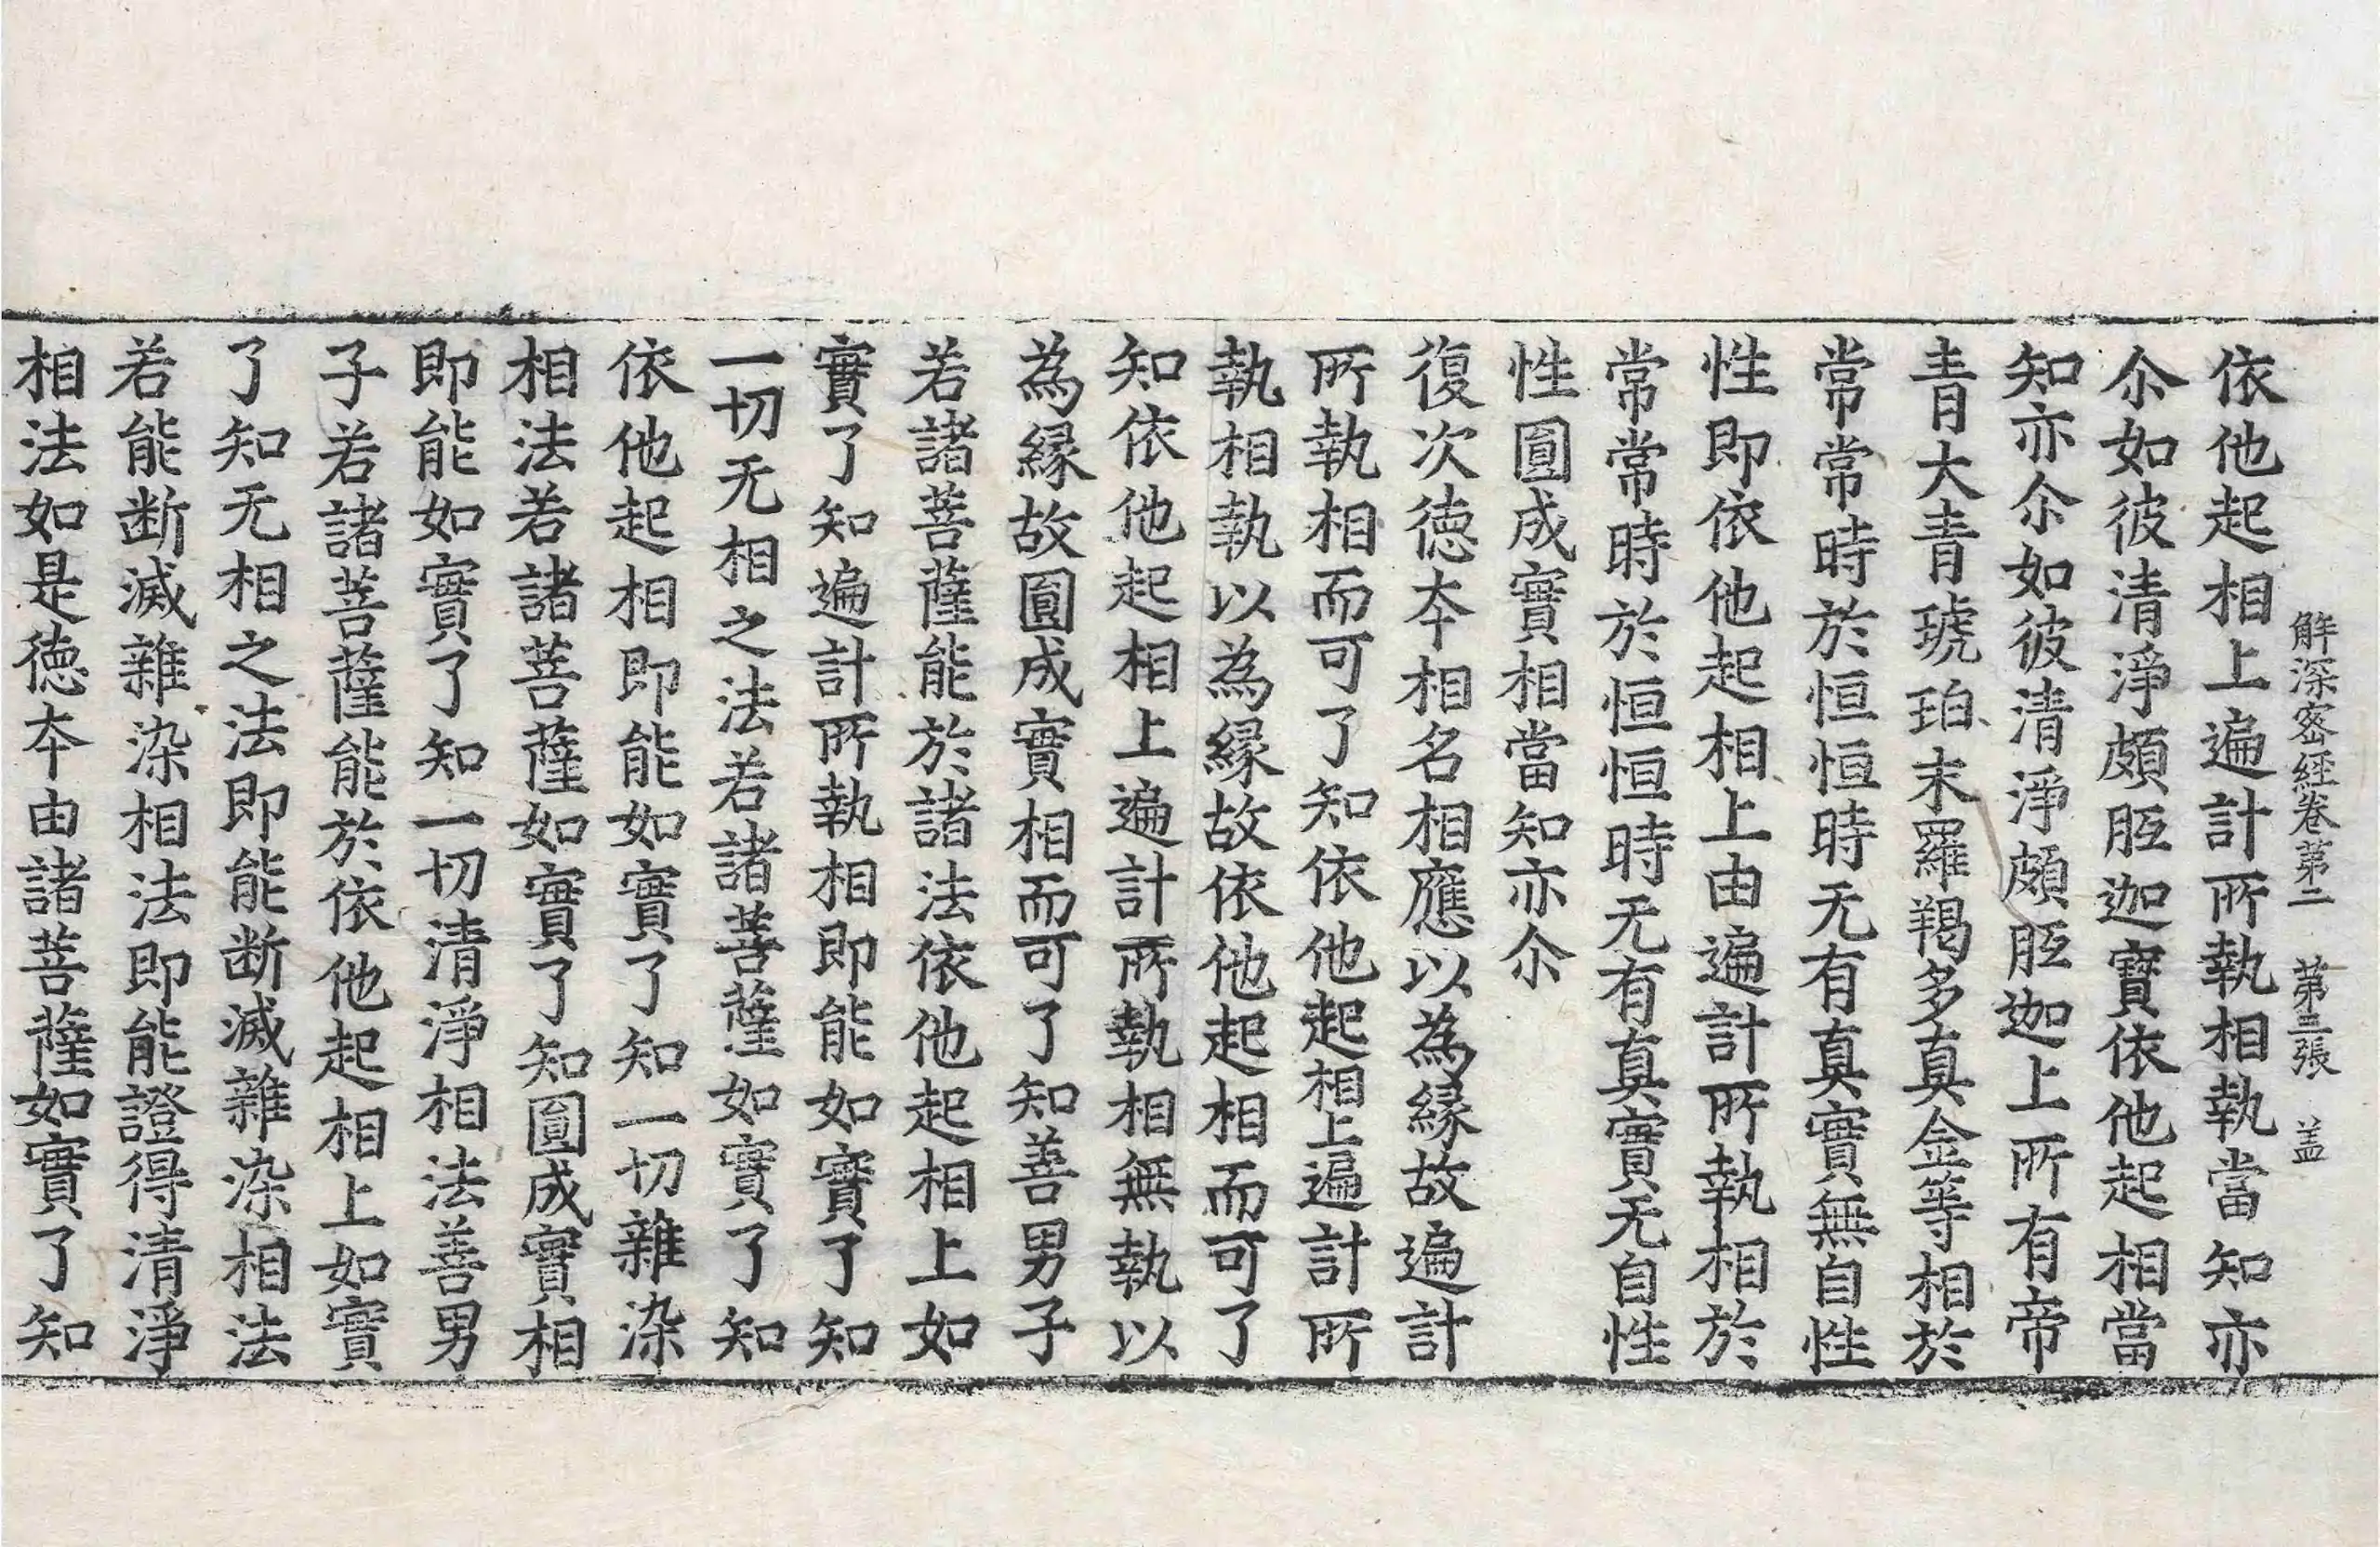 解深密経卷苐二 苐三張 盖
依他起相上遍計所執相執當知亦
尒如彼清淨頗胝迦寶依他起相當
知亦尒如彼清淨頗胝迦上所有帝
青大青琥珀末羅羯多真金等相於
常常時於恒恒時无有真實無自性
性即依他起相上由遍計所執相於
常常時於恒恒時无有真實无自性
性圎成實相當知亦尒
復次德夲相名相應以為縁故遍計
所執相而可了知依他起相上遍計所
執相執以為縁故依他起相而可了
知依他起相上遍計所執相無執以
為縁故圎成實相而可了知善男子
若諸菩薩能於諸法依他起相上如
實了知遍計所執相即能如實了知
一切无相之法若諸菩薩如實了知
依他起相即能如實了知一切雜染
相法若諸菩薩如實了知圎成實相
即能如實了知一切清淨相法善男
子若諸菩薩能於依他起相上如實
了知无相之法即能断滅雜染相法
若能断滅雜染相法即能證得清淨
相法如是德夲由諸菩薩如實了知